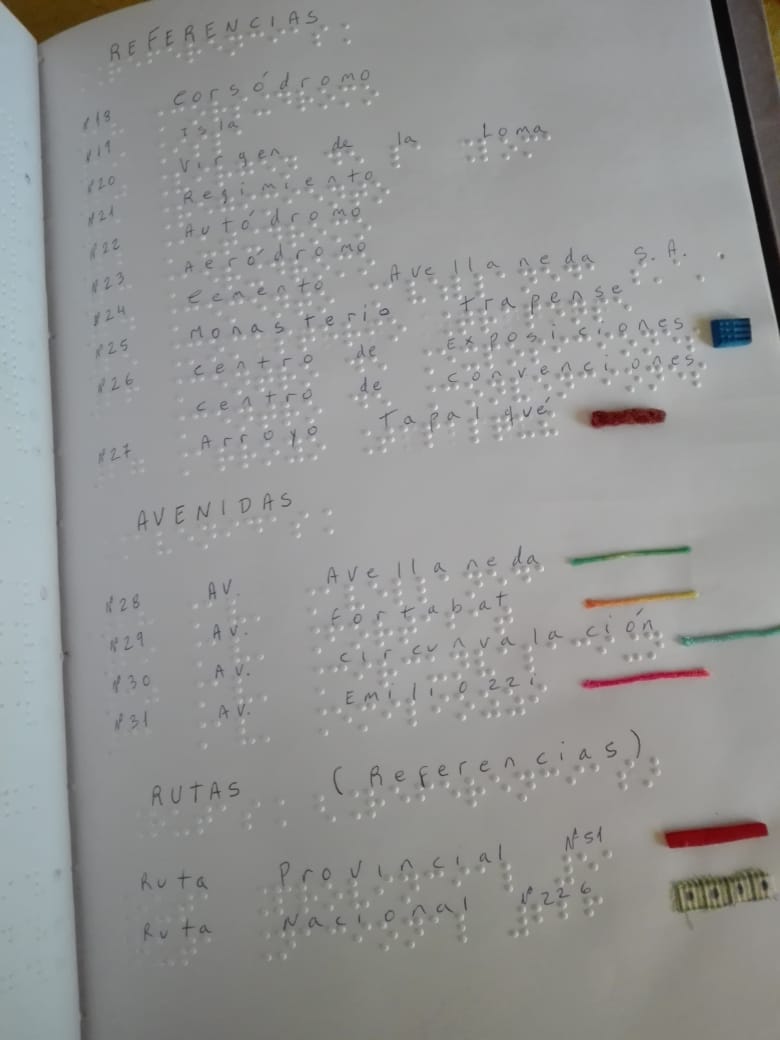 REFERENCIAS
N°18 Corsódromo
N°19 Isla
N°20 Virgen de la Loma
N°21 Regimiento
N°22 Autódromo
N°23 Aeródromo
N°24 Cemento Avellaneda S.A.
N°25 Monasterio trapense
N°26 Centro de Exposiciones
Centro de Convenciones
N°27 Arroyo Tapalqué
AVENIDAS
N°28 AV. Avellaneda
N°29 AV. Fortabat
N°30 AV. Circunvalación
N°31 AV. Emiliozzi
RUTAS (Referencias)
Ruta Provincial N°51
Ruta Nacional N°226